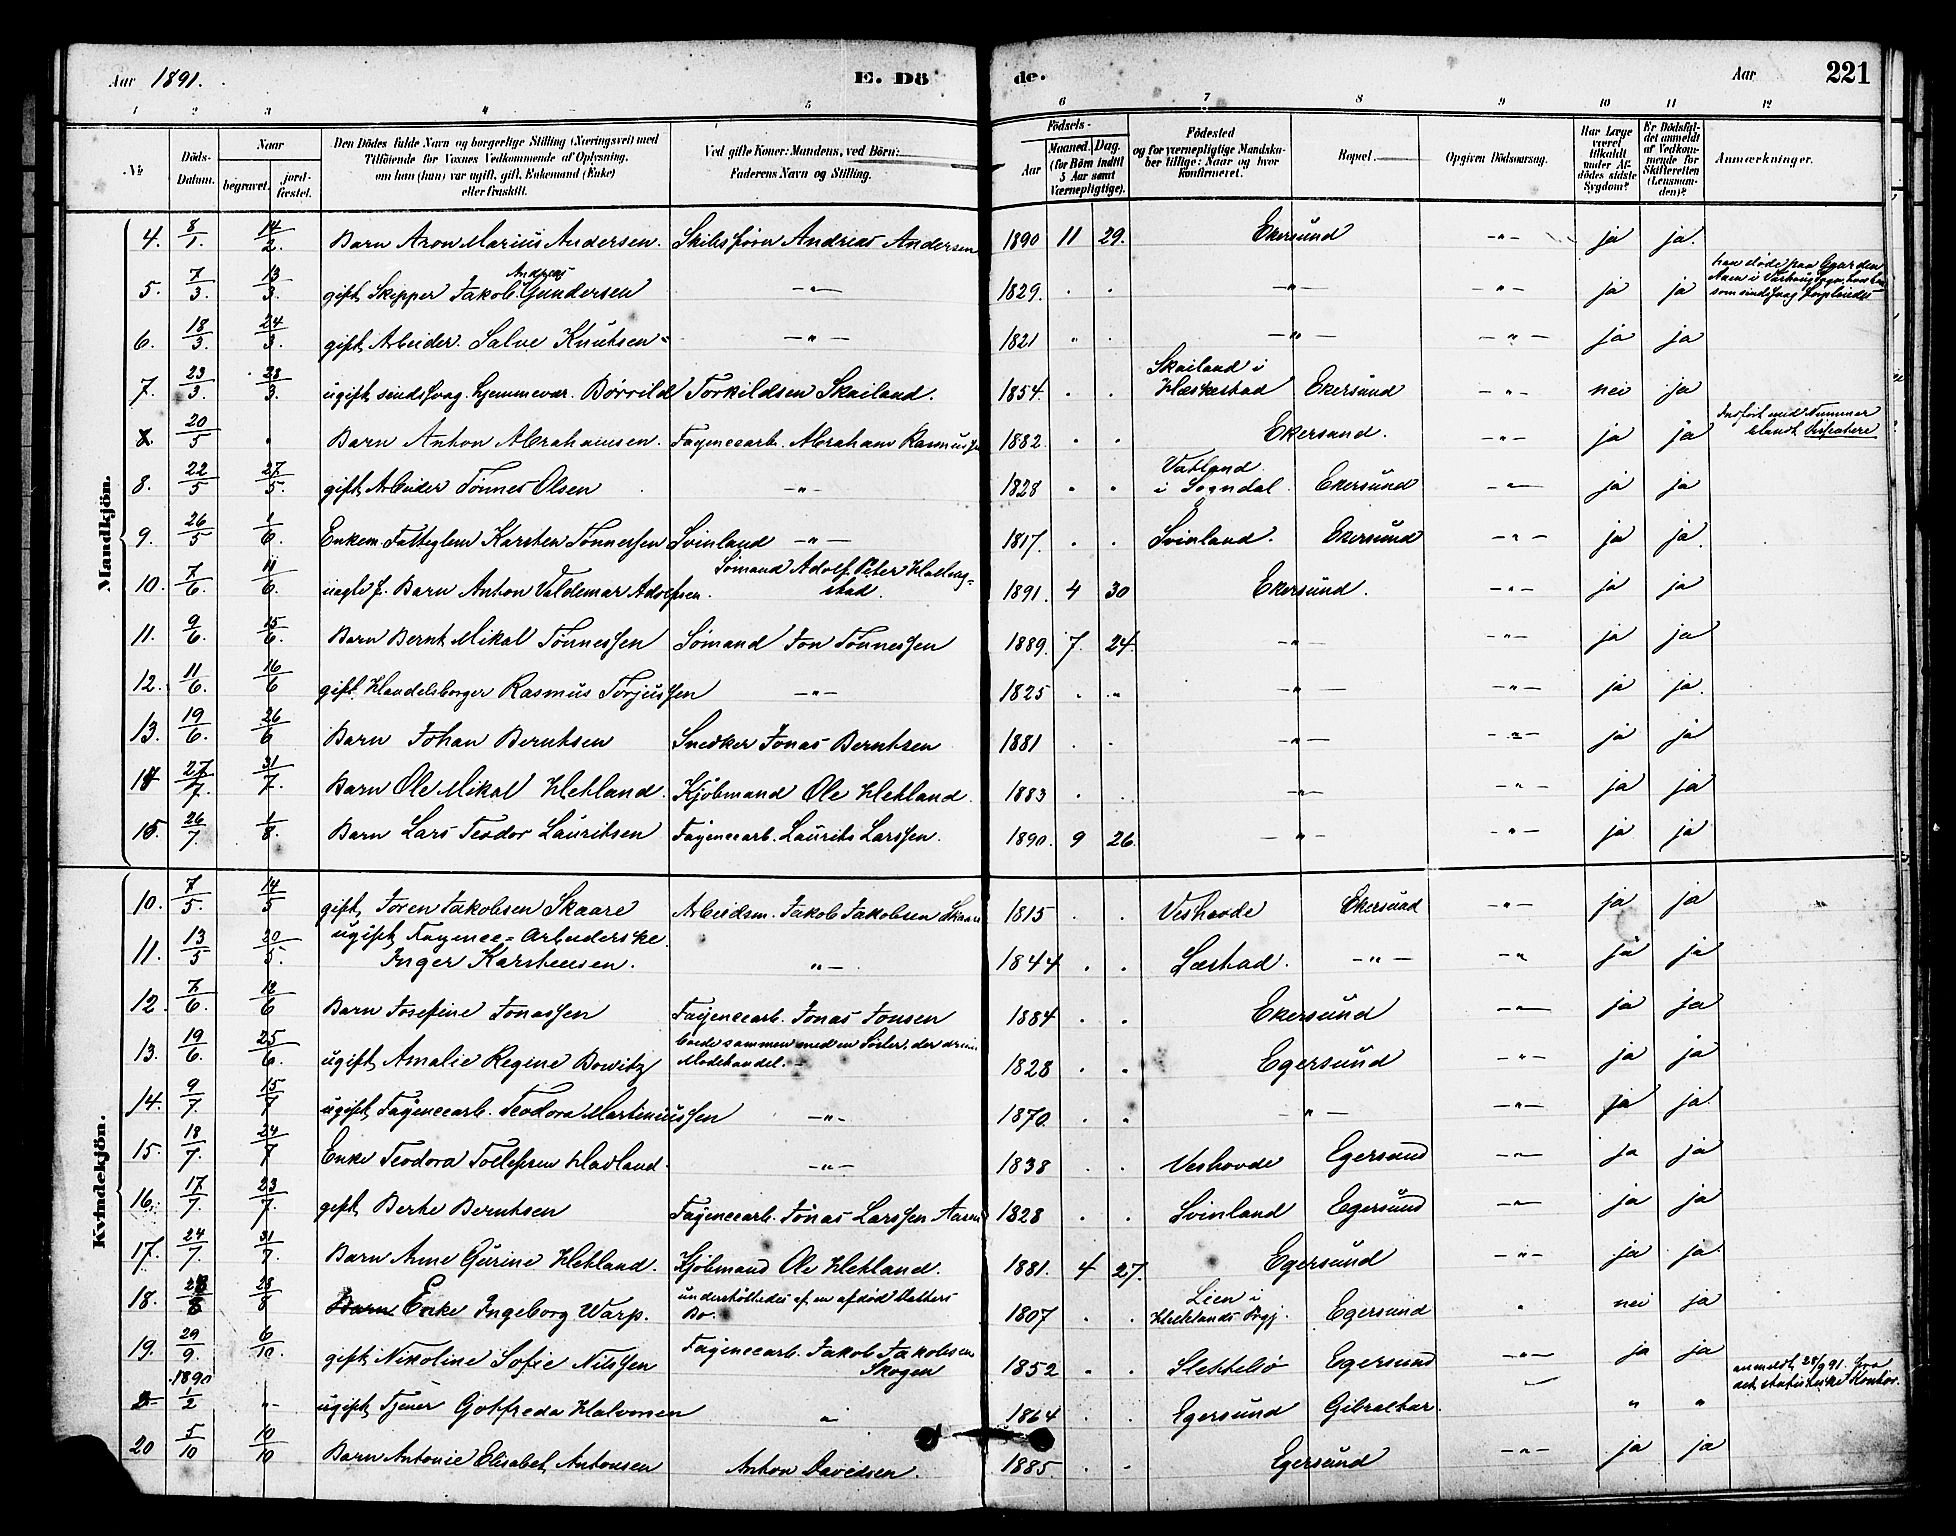 Aar 1891. E. Dö de. Aar 221
1 2 3 4 5 6 7 8 9 10 11 12
№ Döds-Datum. Naar begravet. jord-fæstet. Den Dödes fulde Navn og borgerlige Stilling (Næringsvei) med Tilföiende for Voxnes Vedkommende af Oplysning, om han (hun) var ugift, gift, Enkemand (Enke) eller fraskilt. Ved gifte Koner: Mandens, ved Börn: Faderens Navn og Stilling. Födsels- Aar Maaned. Dag. (for Börn indtil 5 Aar samt Værnepligtige). Födested og for værnepligtige Mandskaber tillige: Naar og hvor Konfirmeret. Bopæl. Opgiven Dödsaarsag. Har Læge været tilkaldt under Afdödes sidste Sygdom? Er Dödsfaldet anmeldt af Vedkommende for Skifteretten (Lensmanden)? Anmærkninger.
Mandkjön.
4. 8/1. 14/2. Barn Aron Marius Andersen. Skibsförer Andreas Andersen 1890 11 29. Ekersund -"- ja ja.
5. 7/3. 13/3. gift Skipper Jakob Andreas Gundersen -"- 1829. . . -"- -"- ja ja han döde paa Gaarden
6. 18/3. 24/3. gift Arbeider. Salve Knutsen -"- 1821 " . -"- -"- ja ja
7. 23/3. 28/3. ugift sindssvag. Börrild Torkildsen Skailand. 1854. . . Skailand i Heskestad Ekersund -"- nei ja
8. 20/5 " Barn Anton Abrahamsen. Fayencearb. Abraham Rasmussen 1882. . . Ekersund. -"- ja ja Indfört med Nummer blandt Dissentere
8. 22/5 27/5. gift Arbeider Tönnes Olsen -"- 1828 " " Vatland i Sogndal. Ekersund -"- ja ja
9. 26/5 1/6. Enkem. Fattiglem Karsten Tönnessen Svinland -"- 1817. . . Svinland. Ekersund -"- ja ja.
10. 7/6. 11/6. uegte f. Barn Anton Valdemar Adolfsen. Sömand Adolf Peter 1891. 4 30 Ekersund. -"- ja ja
11. 9/6. 15/6. Barn Bernt Mikal Tönnessen Sömand Jon Tönnessen 1889. 7. 24. -"- -"- ja ja
12. 11/6. 16/6 gift Handelsborger Rasmus Torjussen -"- 1825 . " -"- -"- ja ja.
13. 19/6. 26/6 Barn Johan Berntsen Snedker Jonas Berntsen 1881 . . -"- -"- ja ja
14 27/7. 31/7. Barn Ole Mikal Hetland. Kjöbmand Ole Hetland. 1883 . . -"- -"- ja ja
15. 26/7 1/8. Barn Lars Teodor Lauritsen Fayencearb. Laurits Larssen. 1890. 9 26. -"- -"- ja ja
Kvindekjön.
10. 7/5. 14/5 gift Joren Jakobsen Skaare Arbeidsm. Jakob Jakobsen Skaare 1815 . . Veshovde Ekersund -"- ja ja
11. 13/5 20/5. ugift Fayence-Arbeiderske Inger Karstensen. "- 1844 . . Lestad. -"- -" ja ja
12. 7/6. 12/6 Barn Josefine Jonassen Fayencearb. Jonas Jonsen 1884 . " Ekersund -"- ja ja
13. 19/6. 25/6. ugift Amalie Regine Bowitz boede sammen med en Söster, der drev Modehandel. 1828 . " Egersund -"- ja ja
14. 9/7. 15/7 ugift Fayencearb. Teodora Martinussen -"- 1870. . " -"- -"- ja ja
15. 18/7. 24/7 Enke Teodora Tollefsen Havland. -"- 1838 . . Veshovde Egersund -"- ja ja
16. 17/7. 23/7. gift Berte Berntsen Fayencearb. Jonas Larssen 1828 . . Svinland Egersund -"- ja ja
17. 24/7. 31/7. Barn Anne Gurine Hetland. Kjöbmand Ole Hetland. 1881. 4 27. Egersund -"- ja ja.
18. 28/8 Enke Ingeborg Warp. understöttedes af en afdöd Datters Bo. 1807 . . Lien i Hetlands Prgj. Egersund " nei ja
19. 29/9. 6/10. gift Nikoline Sofie Nilssen Fayencearb. Jakob Jakobsen Skogen 1852 . . Slettebö Egersund -"- ja ja
1890 1/2 "- ugift Tjener Gotfreda Halvorsen " 1864 . . Egersund Gibraltar. " " anmeldt 28/9 91. fra det statistiske Kontor.
20 5/10 10/10 Barn Antonie Elisabet Antonsen Anton Davidsen. 1885. . - Egersund -"- ja ja